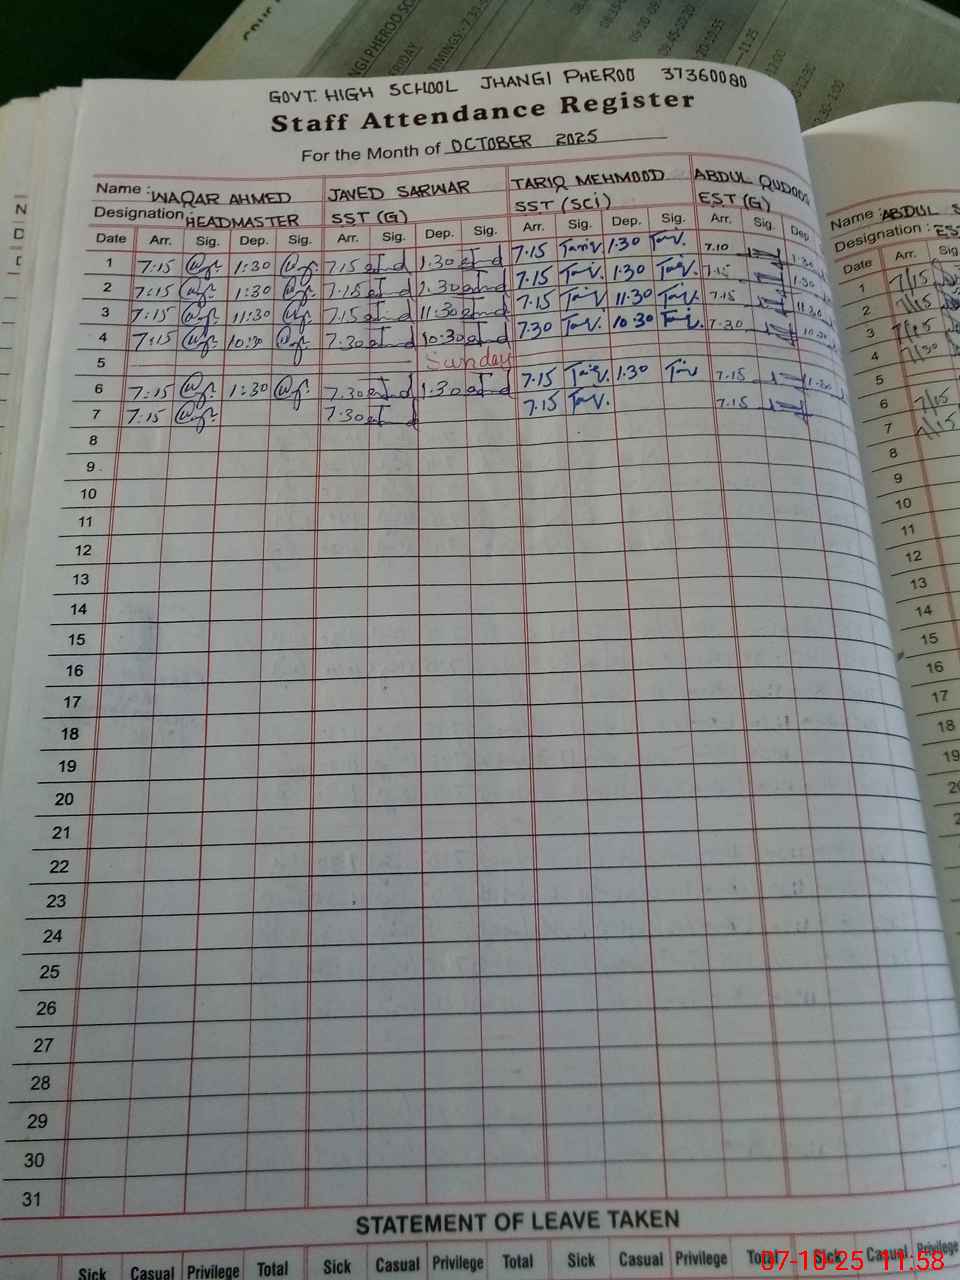 GOVT. HIGH SCHOOL JHANGI PHEROO 37360080
Staff Attendance Register
For the Month of OCTOBER 2025
Name : WAQAR AHMED JAVED SARWAR TARIQ MEHMOOD ABDUL QUDOOS
Designation : HEADMASTER SST (G) SST (SCi) EST (G)
Date Arr. Sig. Dep. Sig. Arr. Sig. Dep. Sig. Arr. Sig. Dep. Sig. Arr. Sig. Dep
1 7:15 1:30 7.15 1.30 7.15 1.30 7.10 1.30
2 7:15 1:30 7.15 1.30 7.15 1.30 7.15 1.30
3 7:15 11:30 7.15 11.30 7.15 11.30 7.15 11.30
4 7:15 10:30 7.30 10:30 7.30 10.30 7.30 10.30
5 Sunday
6 7:15 1:30 7.30 1.30 7.15 1.30 7.15 1.30
7 7.15 7.30 7.15 7.15
8
9
10
11
12
13
14
15
16
17
18
19
20
21
22
23
24
25
26
27
28
29
30
31
STATEMENT OF LEAVE TAKEN
Sick Casual Privilege Total Sick Casual Privilege Total Sick Casual Privilege Total Sick Casual Privilege
Name : ABDUL
Designation : ES
Date Arr. Sig
1 7/15
2 7/15
3 7/15
4 7/30
5
6 7/15
7 7/15
8
9
10
11
12
13
14
15
16
17
18
19
07-10-25 11:58